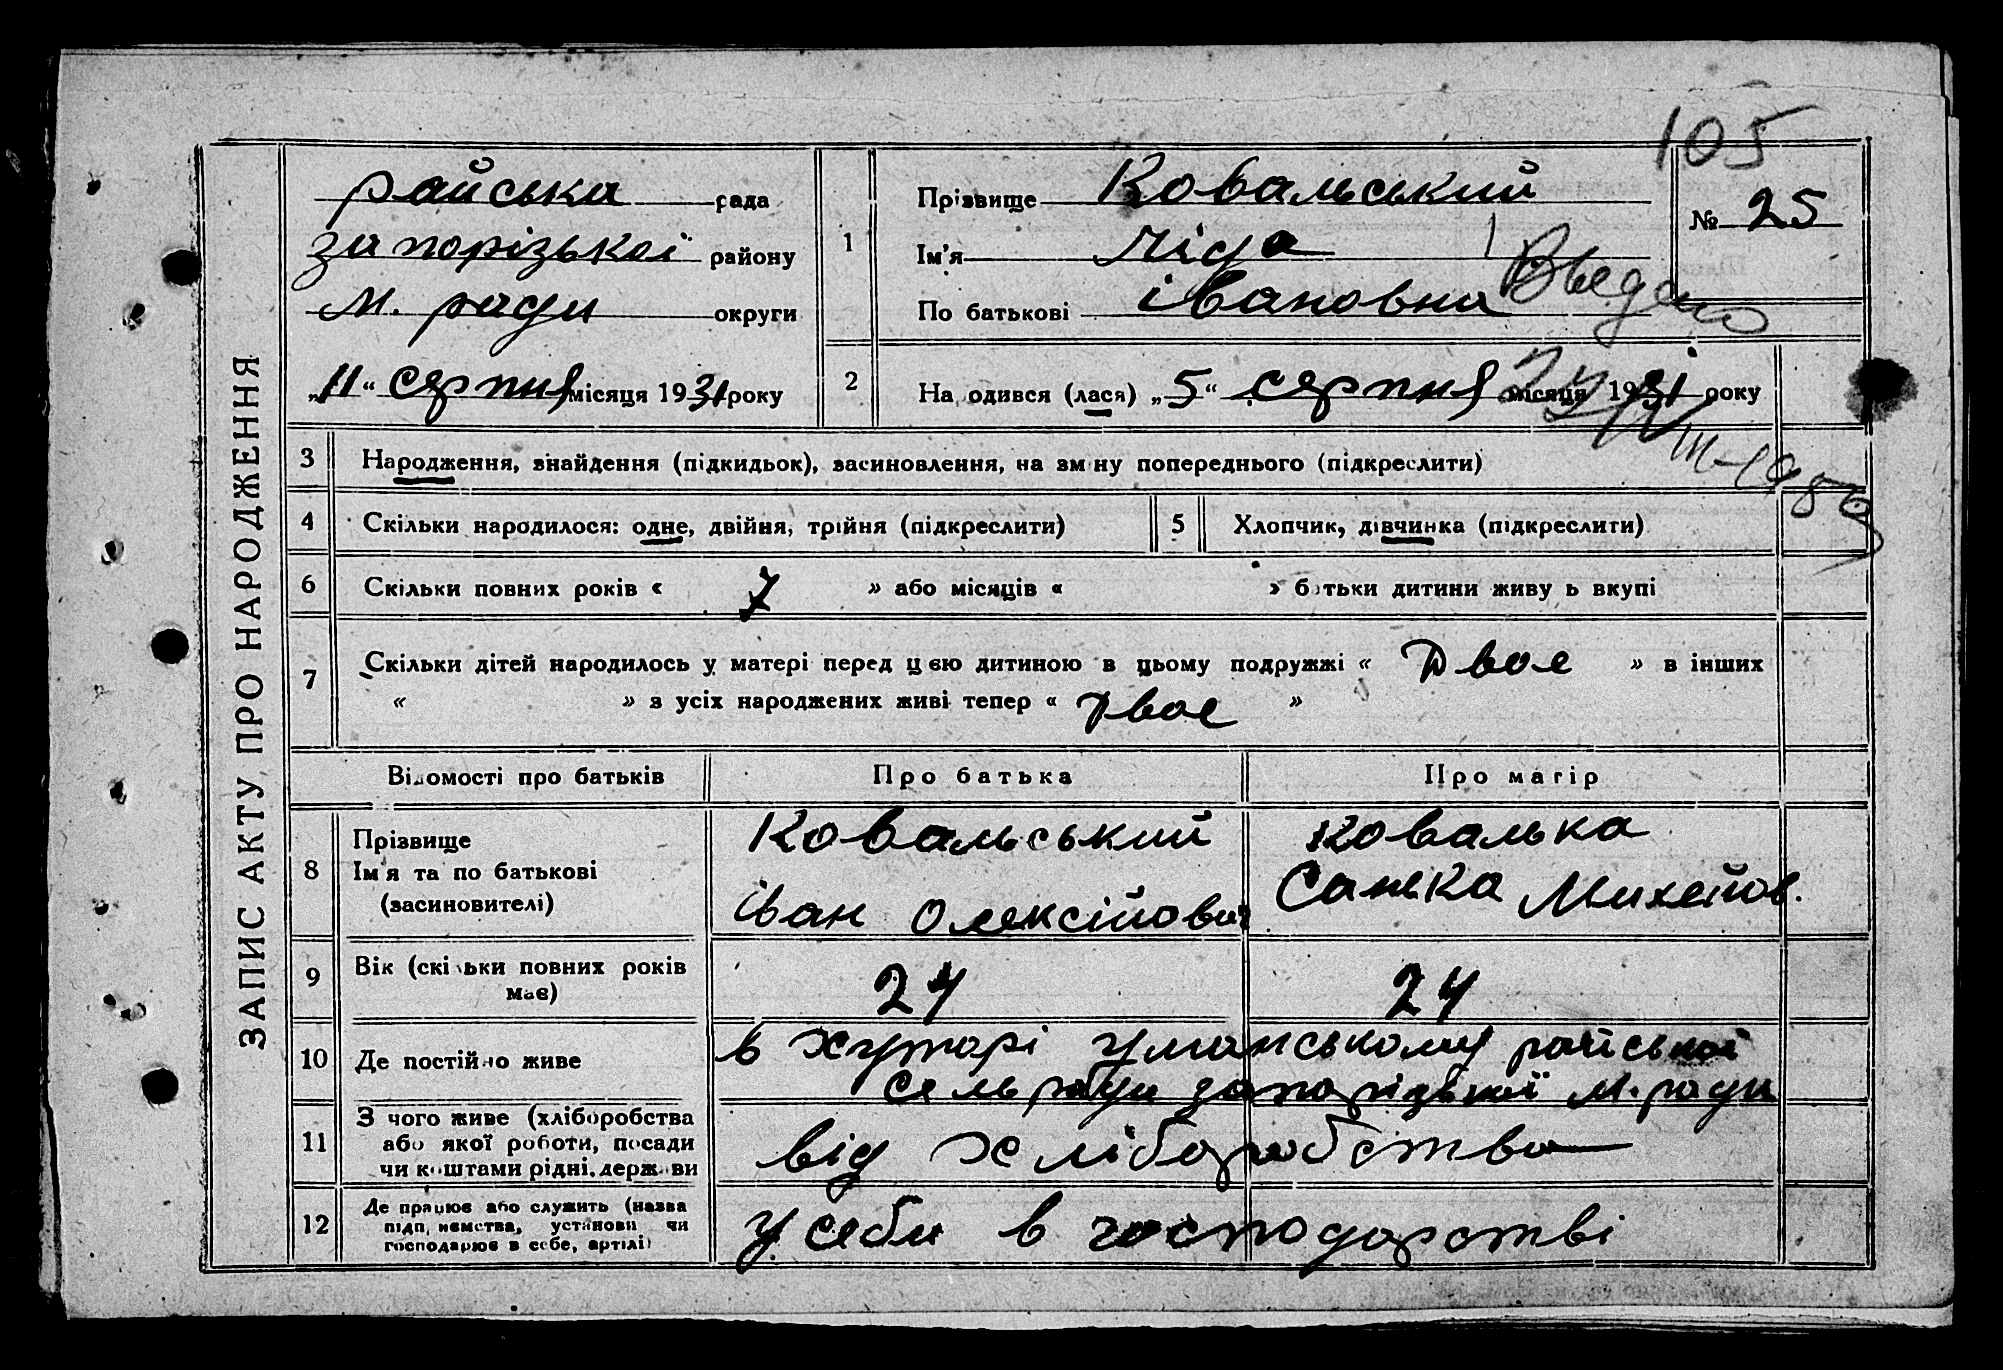 105
ЗАПИС АКТУ ПРО НАРОДЖЕННЯ
райська рада
запорізької району
м. ради округи
„11“ серпня місяця 1931 року
1
Прізвище Ковальський
Ім'я Ліда
По батькові івановна
№ 25
Введено
2
На одився (лася) „5“ серпня місяця 1931 року
3 Народження, знайдення (підкидьок), засиновлення, на зм ну попереднього (підкреслити)
4 Скільки народилося: одне, двійня, трійня (підкреслити)
5 Хлопчик, дівчинка (підкреслити)
6 Скільки повних років « 7 » або місяців « » батьки дитини живу ь вкупі
7 Скільки дітей народилось у матері перед цією дитиною в цьому подружжі « Двое » в інших
« » з усіх народжених живі тепер « Двое »
Відомості про батьків Про батька Про матір
8
Прізвище
Ім'я та по батькові
(засиновителі)
Ковальський
іван Олексійович
Ковалька
Санька Михейов.
9 Вік (скільки повних років
має)
24 24
10 Де постійно живе
в Хуторі Уманському райської
сельради запорізької м. ради
11 З чого живе (хліборобства
або якої роботи, посади
чи коштами рідні, держави
від хліборобства
12 Де працює або служить (назва
підп, иемства, установи чи
господарює в себе, артілі)
у себи в господарстві